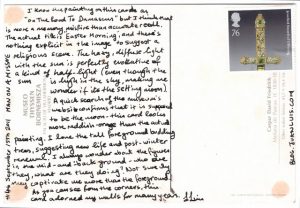 I know the painting on this card as
"On the Road To Damascus", but I think that
is more a memory misfire than accurate recall.
The actual title is Easter Morning, and there's
nothing explicit in the image to suggest a
religious scene. The hazy, diffused light
with the sun is perfectly evocative of
a kind of half-light (even though the
sun is high in the sky, making me
wonder if it's the setting moon).
A quick search of the museum's
website confirms that it is supposed
to be the moon - this card looks
more reddish orange than the actual
painting. I love the tall foreground budding
trees, suggesting new life and post-winter
renewal. I always wonder about the figures
in the mid- and background - who are
they, what are they doing? Not sure
they captivate me more than the foreground.
As you can see from the corners, this
card adorned my walls for many years.
#660 September 15th 2011 MAN ON A MISSIVE
MUSEO
THYSSEN
BORNEMISZA
76
Caspar David Friedrich
BLOG.IOANLUIS.COM